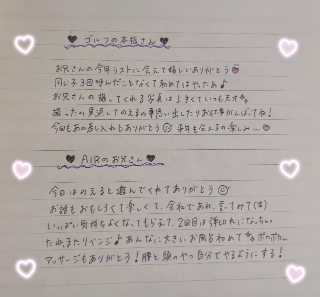 ♥ ゴルフの本指さん ♥
お兄さんの今年ラストに会えて嬉しいありがとう
同じ子3回呼んだことなくて初めてはやたあ♪
お兄さんの撮ってくれる写真は上手くていつも天才
撮ったの見返してのえるの事思い出したりお仕事がんばってね!
今回もあの差し入れとありがとう 来年も会えるの楽しみ…♡
♥ AIRのお兄さん ♥
今日はのえると遊んでくれてありがとう
お話もおもしろくて楽しくて、
いっぱい気持ちよくなってもらえて、2回目は弾切れになっちゃっ
たね、またリベンジ♪ あんなに大きいお風呂初めて ポカポカ…
マッサージもありがとう!腰と頭のやつ自分でやるようにする!